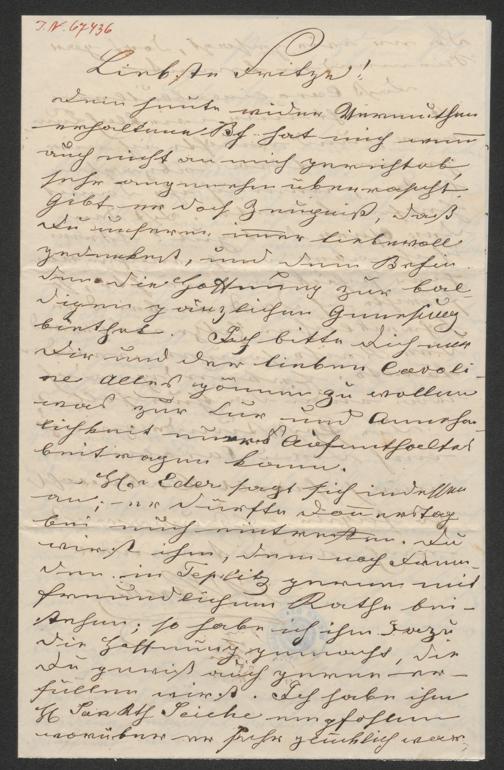 I. N. 67436
Liebste Fritze!
Dein heute wider Vermuthen
erhaltener Bf hat mich wenn
auch nicht an mich gerichtet,
sehr angenehm überrascht
Gibt er doch Zeugniß, daß
Du unserer immer liebevoll
gedenkest, und Dein Befin-
den die Hoffnung zur bal-
digen gänzlichen Genesung
biethet. Ich bitte Dich nur
Dir und der lieben Caroli-
ne Alles gönnen zu wollen
was zur Cur und Anneh-
lichkeit eures Aufenthaltes
beitragen kann.
Hr Eder sagt sich indessen
an; er dürfte Donnerstag
bei euch eintreffen. Du
wirst ihm, dem noch Frem-
den in Teplitz gerne mit
freundlichem Rathe bei-
stehen; so habe ich ihm dazu
die Hoffnung gemacht, die
Du gewiß auch gerne er-
füllen wirst. Ich habe ihm
H San Rth Seiche empfohlen
worüber er sehr glücklich war,